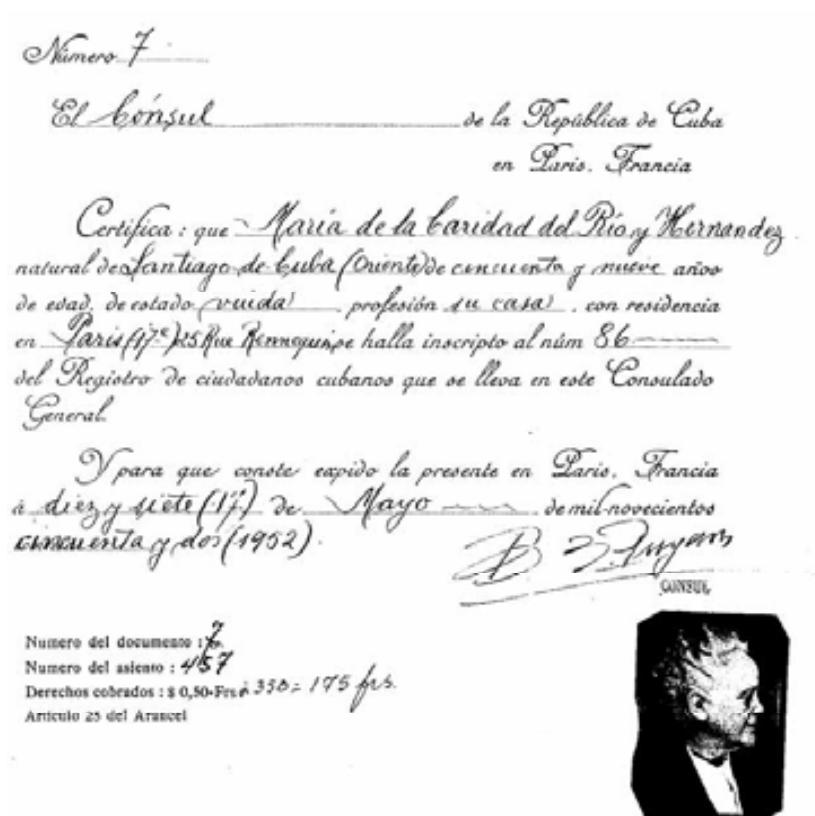 Número 7
El Cónsul de la República de Cuba
en Paris. Francia
Certifica: que María de la Caridad del Río y Hernandez
natural de Santiago de Cuba (Oriente) de cincuenta y nueve años
de edad, de estado viuda profesión su casa, con residencia
en Paris (17e) 25 Rue Rennequin se halla inscripto al núm 86
del Registro de ciudadanos cubanos que se lleva en este Consulado
General.
Y para que conste expido la presente en Paris. Francia
á diez y siete (17) de Mayo de mil novecientos
cincuenta y dos (1952).
CONSUL
Numero del documento : 7
Numero del asiento : 457
Derechos cobrados : $ 0,50-Frs à 350 = 175 frs.
Articulo 25 del Arancel